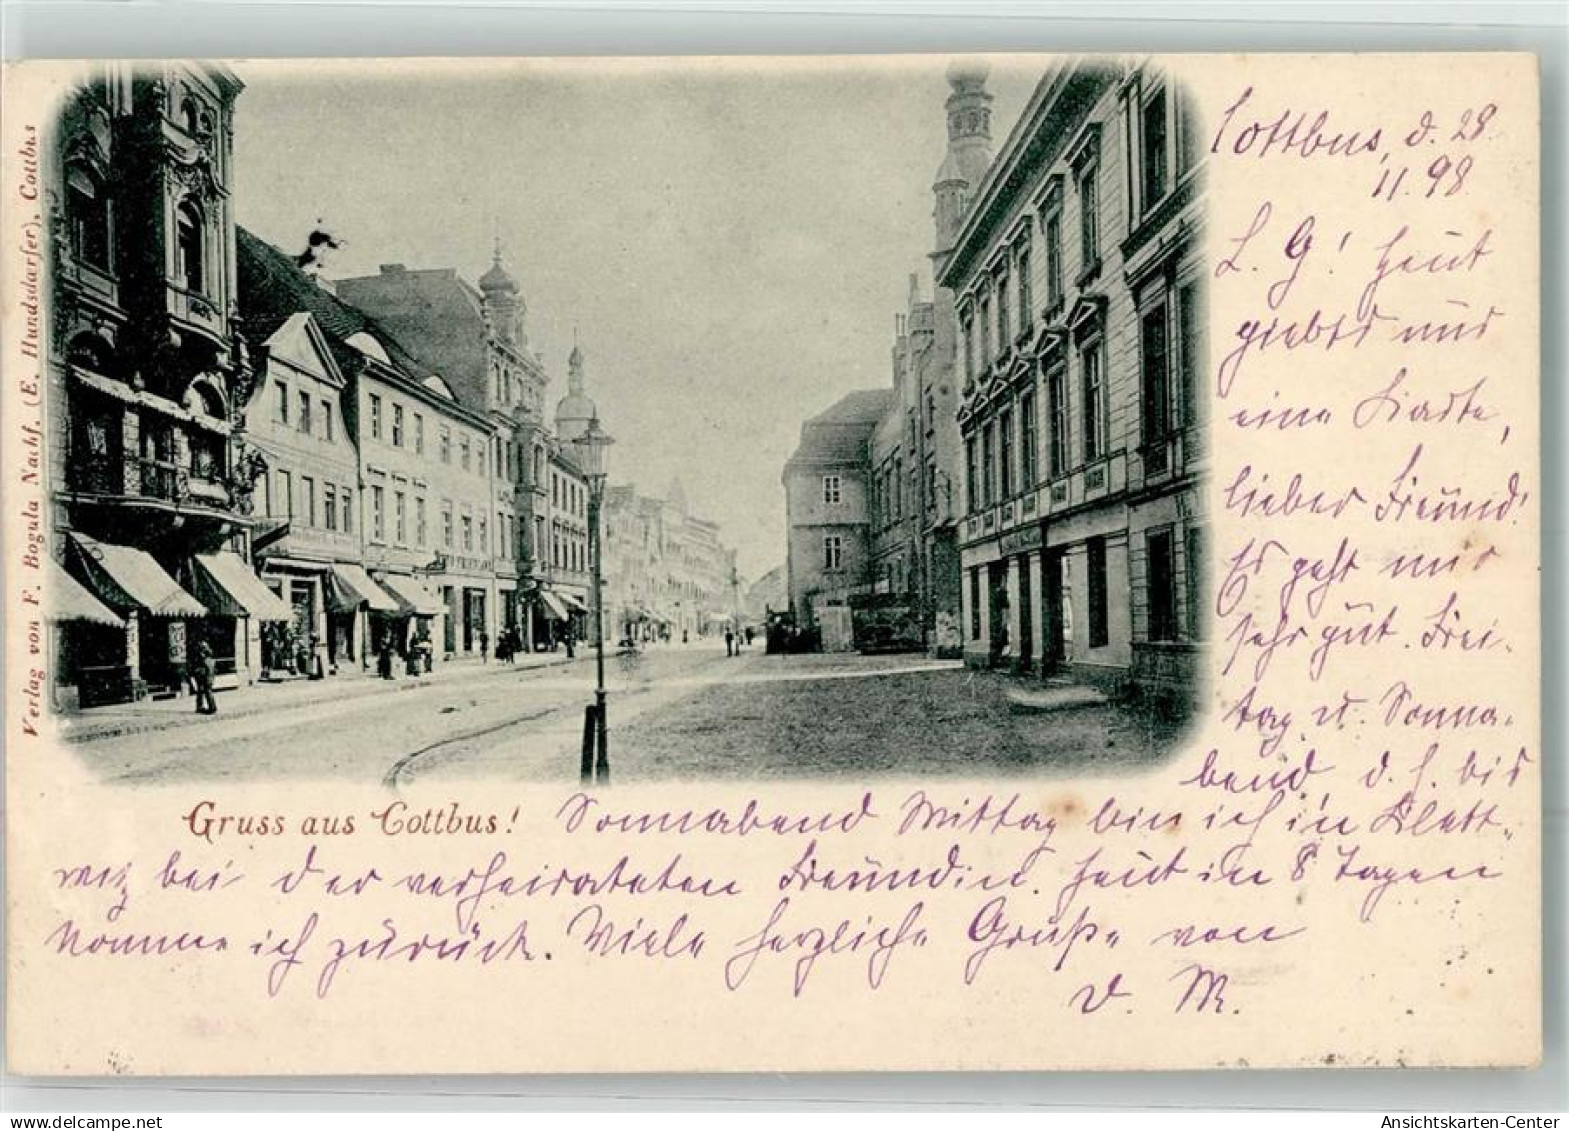 Verlag von F. Bogula Nachf. (E. Hundsdœrfer), Cottbus
Cottbus, d. 28.
11. 98.
L. G! Heut
giebts nur
eine Karte,
lieber Freund!
Es geht mir
sehr gut. Frei-
tag u. Sonna-
bend, d. h. bis
Gruss aus Cottbus!
Sonnabend Mittag bin ich in Klatt-
witz bei der verheirateten Freundin. Heut in 8 Tagen
komme ich zurück. Viele herzliche Grüße von
d. M.
Ansichtskarten-Center
https://www.delcampe.net